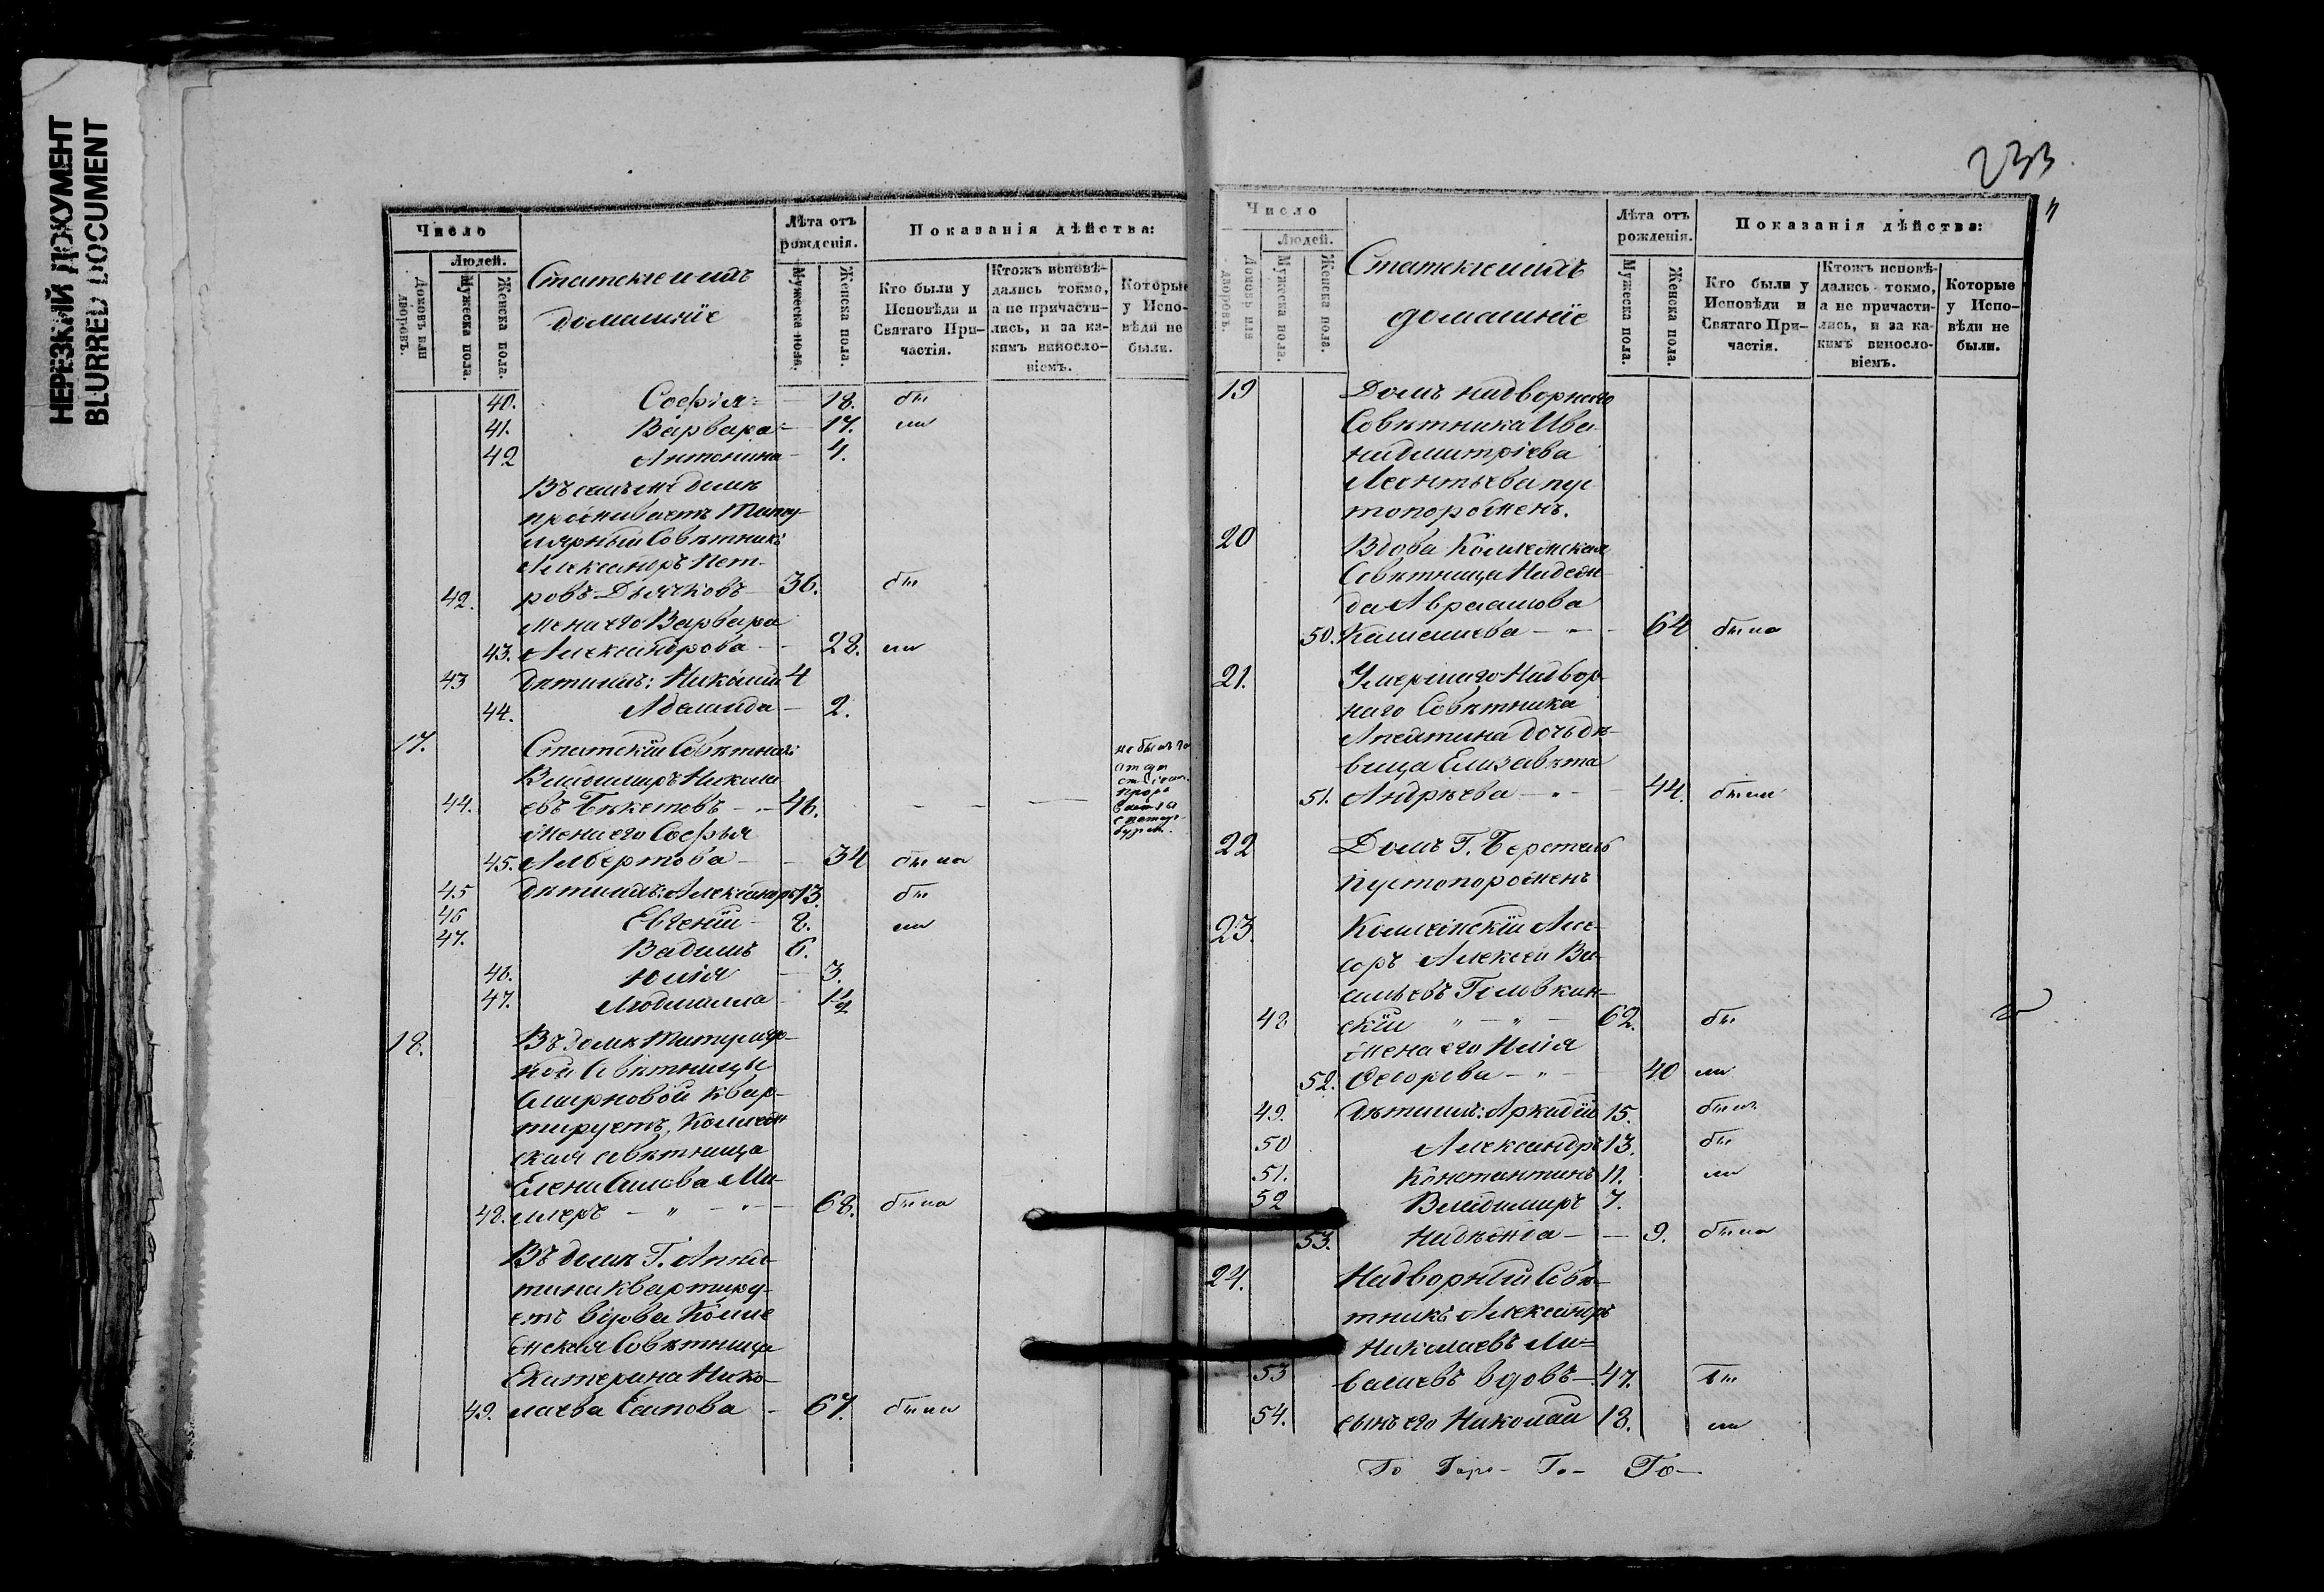 НЕРЕЗКИЙ ДОКУМЕНТ
BLURRED DOCUMENT
Число
Людей.
Домовъ или дворовъ.
Мужеска пола.
Женска пола.
Статскіе и ихъ
домашніе
Лѣта отъ рожденія.
Мужеска пола.
Женска пола.
Показанія дѣйства:
Кто были у Исповѣди и Святаго Причастія.
Ктожъ исповѣ-
дались токмо,
а не причасти-
лись, и за ка-
кимъ винословіемъ.
Которые
у Испо-
вѣди не
были.
40. Софія - 18. бы
41. Варвара - 17. ли
42 Антонина - 4.
Въ семъ же домѣ
проживаетъ Титу-
лярный Совѣтникъ
Александръ Пет-
42. ровъ Дьячковъ 36. бы
Жена его Варвара
43. Александрова - 28. ли
43 Дѣти ихъ: Николай 4
44. Аделаида - 2.
17. Статскій Совѣтникъ
Владимиръ Никола-
44. евъ Бекетовъ - 46.
не былъ
Жена его Софья
45. Албертова - 34 была
45 Дѣти ихъ: Александръ 13. бы
46 Евгеній - 8. ли
47. Вадимъ 6.
46. Юлія - 3.
47. Людмилла - 1 1/2
18. Въ домѣ Титуляр-
ной Совѣтницы
Смирновой квар-
тируетъ, Коллеж-
ская совѣтница
Елена Ми-
48. ллеръ - " - " - 68. была
Въ домѣ Г.
тина квартиру-
етъ вдова Колле
жская Совѣтница
Екатерина Нико-
49. лаева Есипова - 67. была
233
Число
Людей.
Домовъ или дворовъ.
Мужеска пола.
Женска пола.
Статскіе и ихъ
домашніе
Лѣта отъ рожденія.
Мужеска пола.
Женска пола.
Показанія дѣйства:
Кто были у
Исповѣди и
Святаго При-
частія.
Ктожъ исповѣ-
дались токмо,
а не причасти-
лись, и за ка-
кимъ винословіемъ.
Которые
у Испо-
вѣди не
были.
19 Домъ надворнаго
Совѣтника Ива-
на Дмитріева
Леонтьева пус-
топорожженъ.
20 Вдова Коллежская
Совѣтница Надеж-
да Авраамова
50. - " - 64 была
21. Умершаго Надвор-
наго Совѣтника
Апехтина дочь дѣ-
вица Елизавета
51. Андреева - " - 44. была
22 Домъ Г.
пустопорожженъ
23. Коллежскій Асе-
соръ Алексей Ва-
сильевъ Головкин-
48 скій " - " - 62. бы
Жена его Юлія
52. Федорова - " - 40 ли
49. Дѣти ихъ: Аркадій 15. былъ
50 Александръ 13. бы
51. Константинъ 11. ли
52 Владимиръ 7.
53. Надежда - 9. была
24. Надворный Совѣ-
тникъ Александръ
Николаевъ Ли-
53 вдовъ - 47. бы
54. сынъ его Николай 18. ли